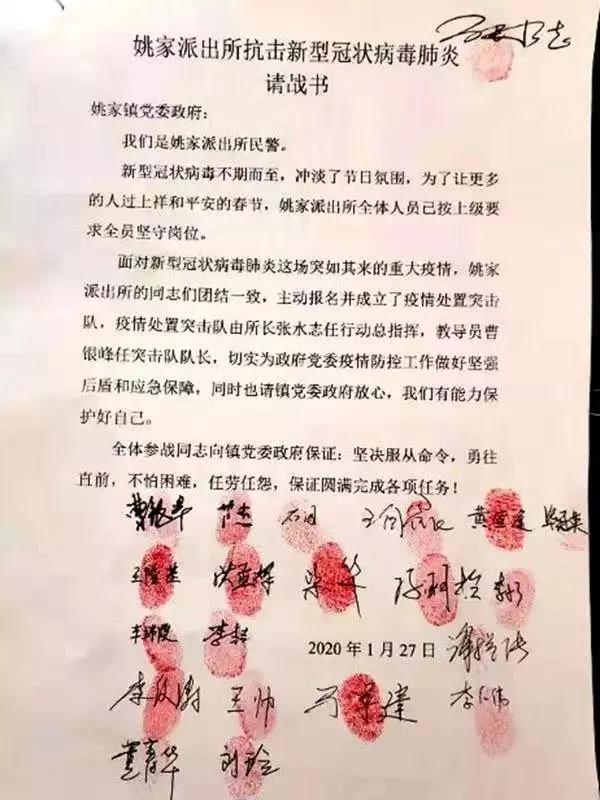 姚家派出所抗击新型冠状病毒肺炎
请战书
姚家镇党委政府：
我们是姚家派出所民警。
新型冠状病毒不期而至，冲淡了节日氛围，为了让更多
的人过上祥和平安的春节，姚家派出所全体人员已按上级要
求全员坚守岗位。
面对新型冠状病毒肺炎这场突如其来的重大疫情，姚家
派出所的同志们团结一致，主动报名并成立了疫情处置突击
队，疫情处置突击队由所长张水志任行动总指挥，教导员曹
银峰任突击队队长，切实为政府党委疫情防控工作做好坚强
后盾和应急保障，同时也请镇党委政府放心，我们有能力保
护好自己。
全体参战同志向镇党委政府保证：坚决服从命令，勇往
直前，不怕困难，任劳任怨，保证圆满完成各项任务！
曹银峰
李超
2020年1月27日
王帅
董育华 刘玲